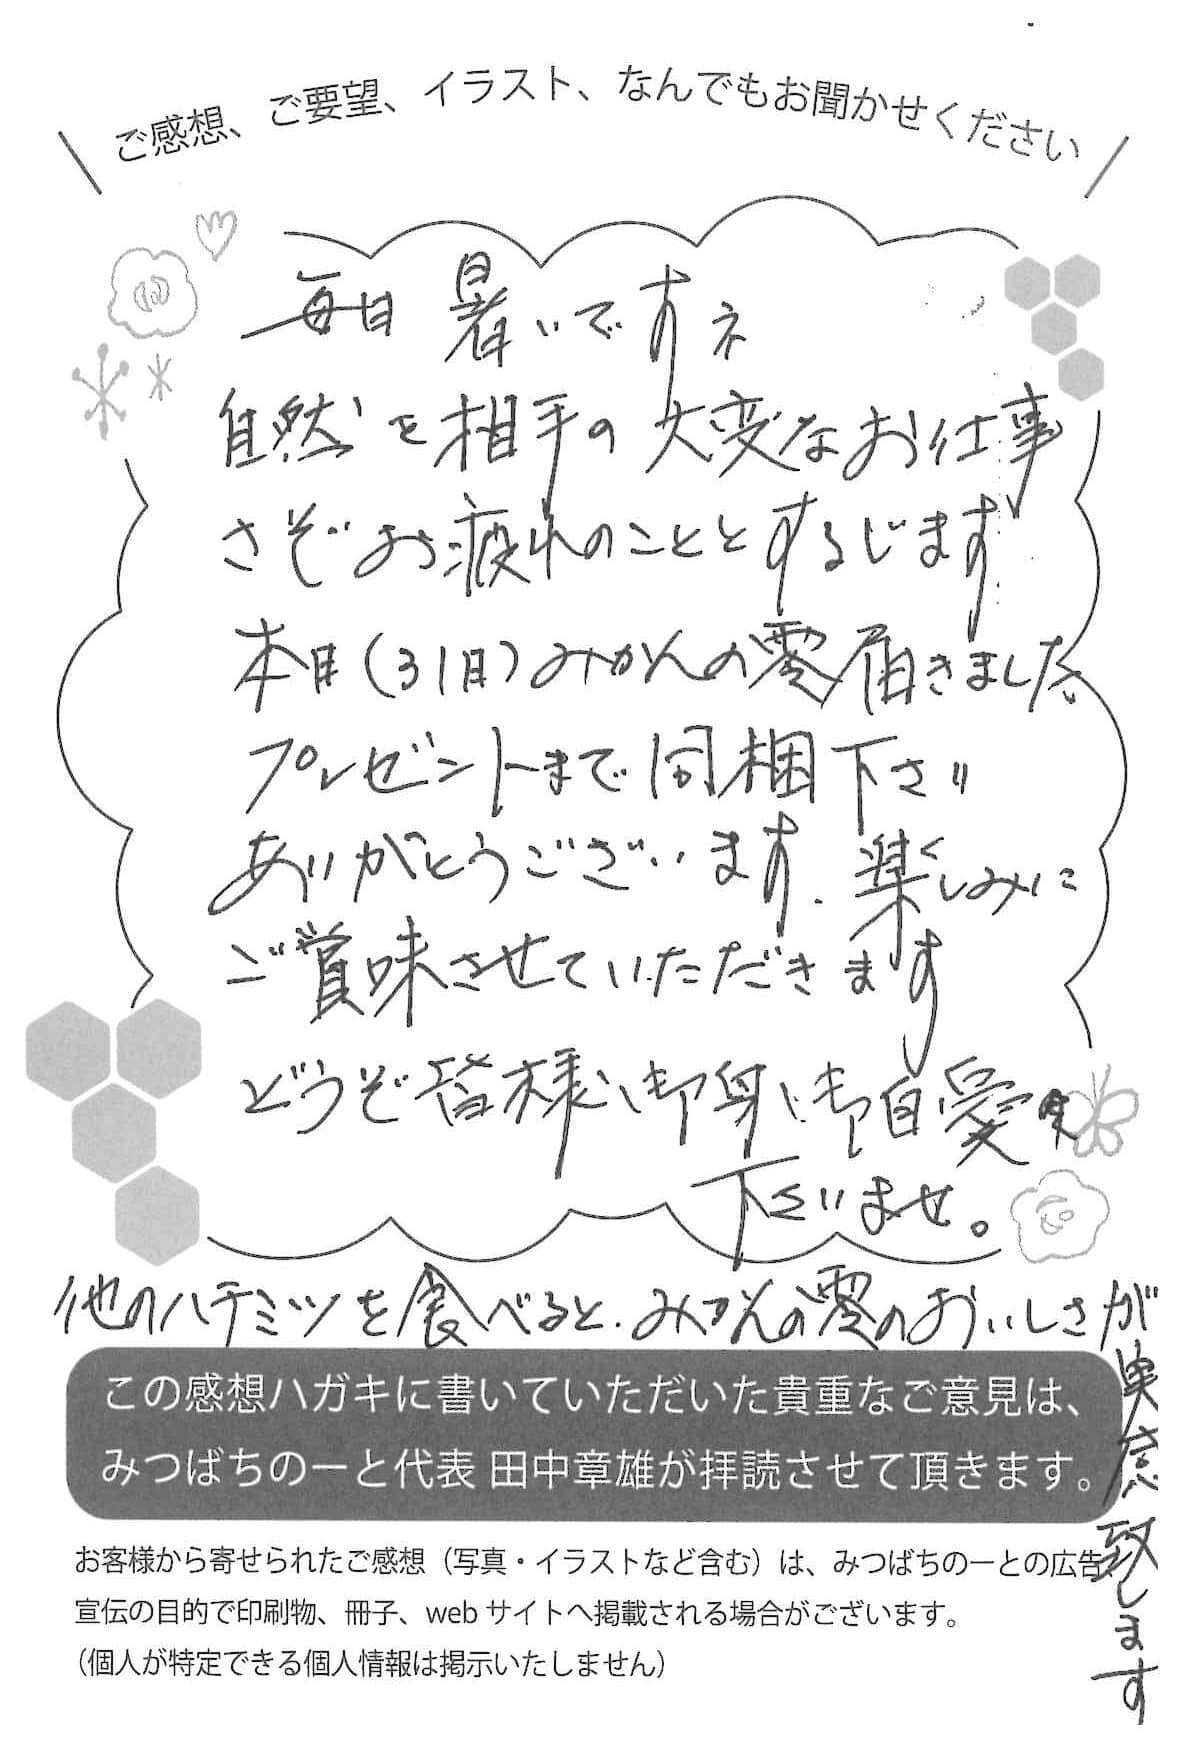 ご感想、ご要望、イラスト、なんでもお聞かせください
毎日 暑いですネ
自然を相手の大変なお仕事
さぞお疲れのこととするじます
本日(31日)みかんの雫届きました
プレゼントまで同梱下さり
ありがとうございます. 楽しみに
ご賞味させていただきます
どうぞ皆様、御身、御自愛
下さいませ。
他のハチミツを食べると.みかんの雫のおいしさが
実感致します
この感想ハガキに書いていただいた貴重なご意見は、
みつばちのーと代表 田中章雄が拝読させて頂きます。
お客様から寄せられたご感想（写真・イラストなど含む）は、みつばちのーとの広告、
宣伝の目的で印刷物、冊子、webサイトへ掲載される場合がございます。
（個人が特定できる個人情報は掲示いたしません）